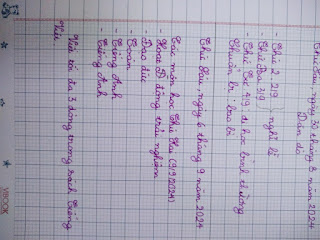 Thứ Sáu, ngày 30 tháng 8 năm 2024
Dặn dò
- Thứ 2, 2/9 nghỉ lễ
- Thứ Ba 3/9
- Thứ Tư 4/9 đi học bình thường
Chuẩn bị bài
Thứ Sáu, ngày 6 tháng 9 năm 2024
Các môn học Thứ Hai (9/9/2024)
- Hoạt Đ động trải nghiệm
- Đạo đức
- Toán
- Tiếng Anh
- Tiếng Anh
Viết tối đa 3 dòng trong sách Tiếng
Việt.
VIBOOK